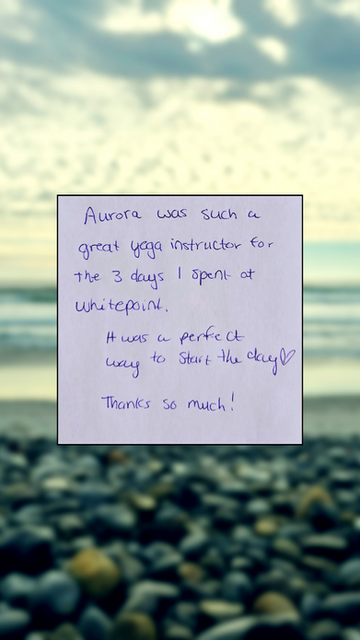 Aurora was such a
great yoga instructor for
the 3 days I spent at
whitepoint.
It was a perfect
way to start the day♡
Thanks so much!